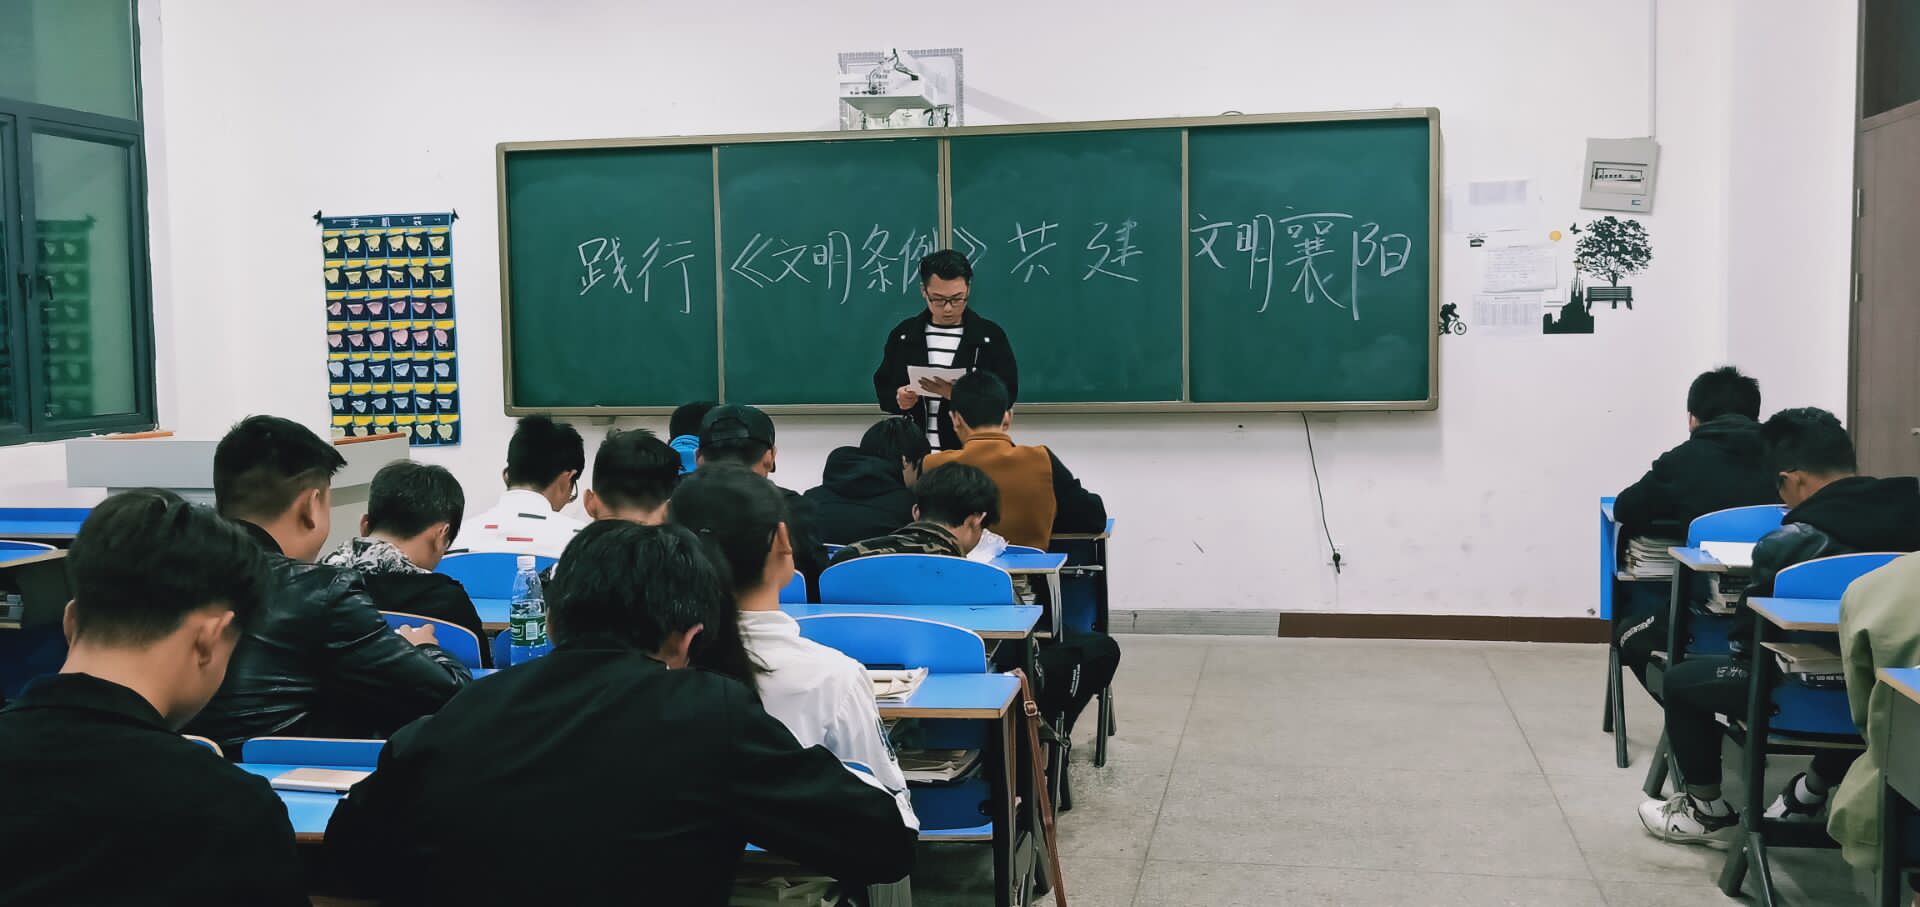 践行《文明条例》共建 文明襄阳
手机袋